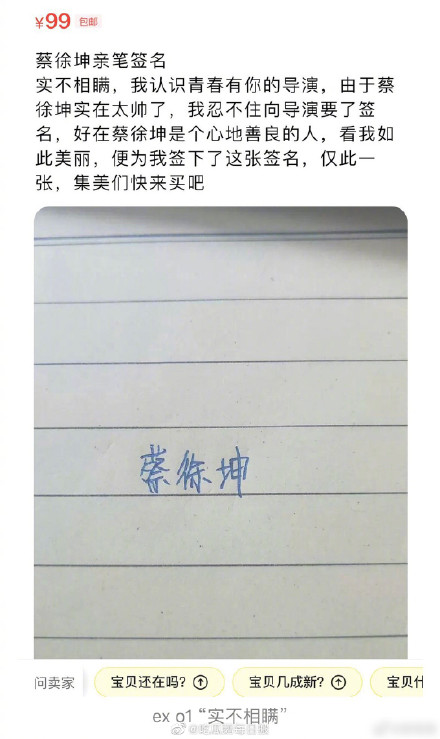 ¥99 包邮
蔡徐坤亲笔签名
实不相瞒，我认识青春有你的导演，由于蔡
徐坤实在太帅了，我忍不住向导演要了签
名，好在蔡徐坤是个心地善良的人，看我如
此美丽，便为我签下了这张签名，仅此一
张，集美们快来买吧
蔡徐坤
问卖家 宝贝还在吗? 宝贝几成新? 宝贝什
ex o1 “实不相瞒”